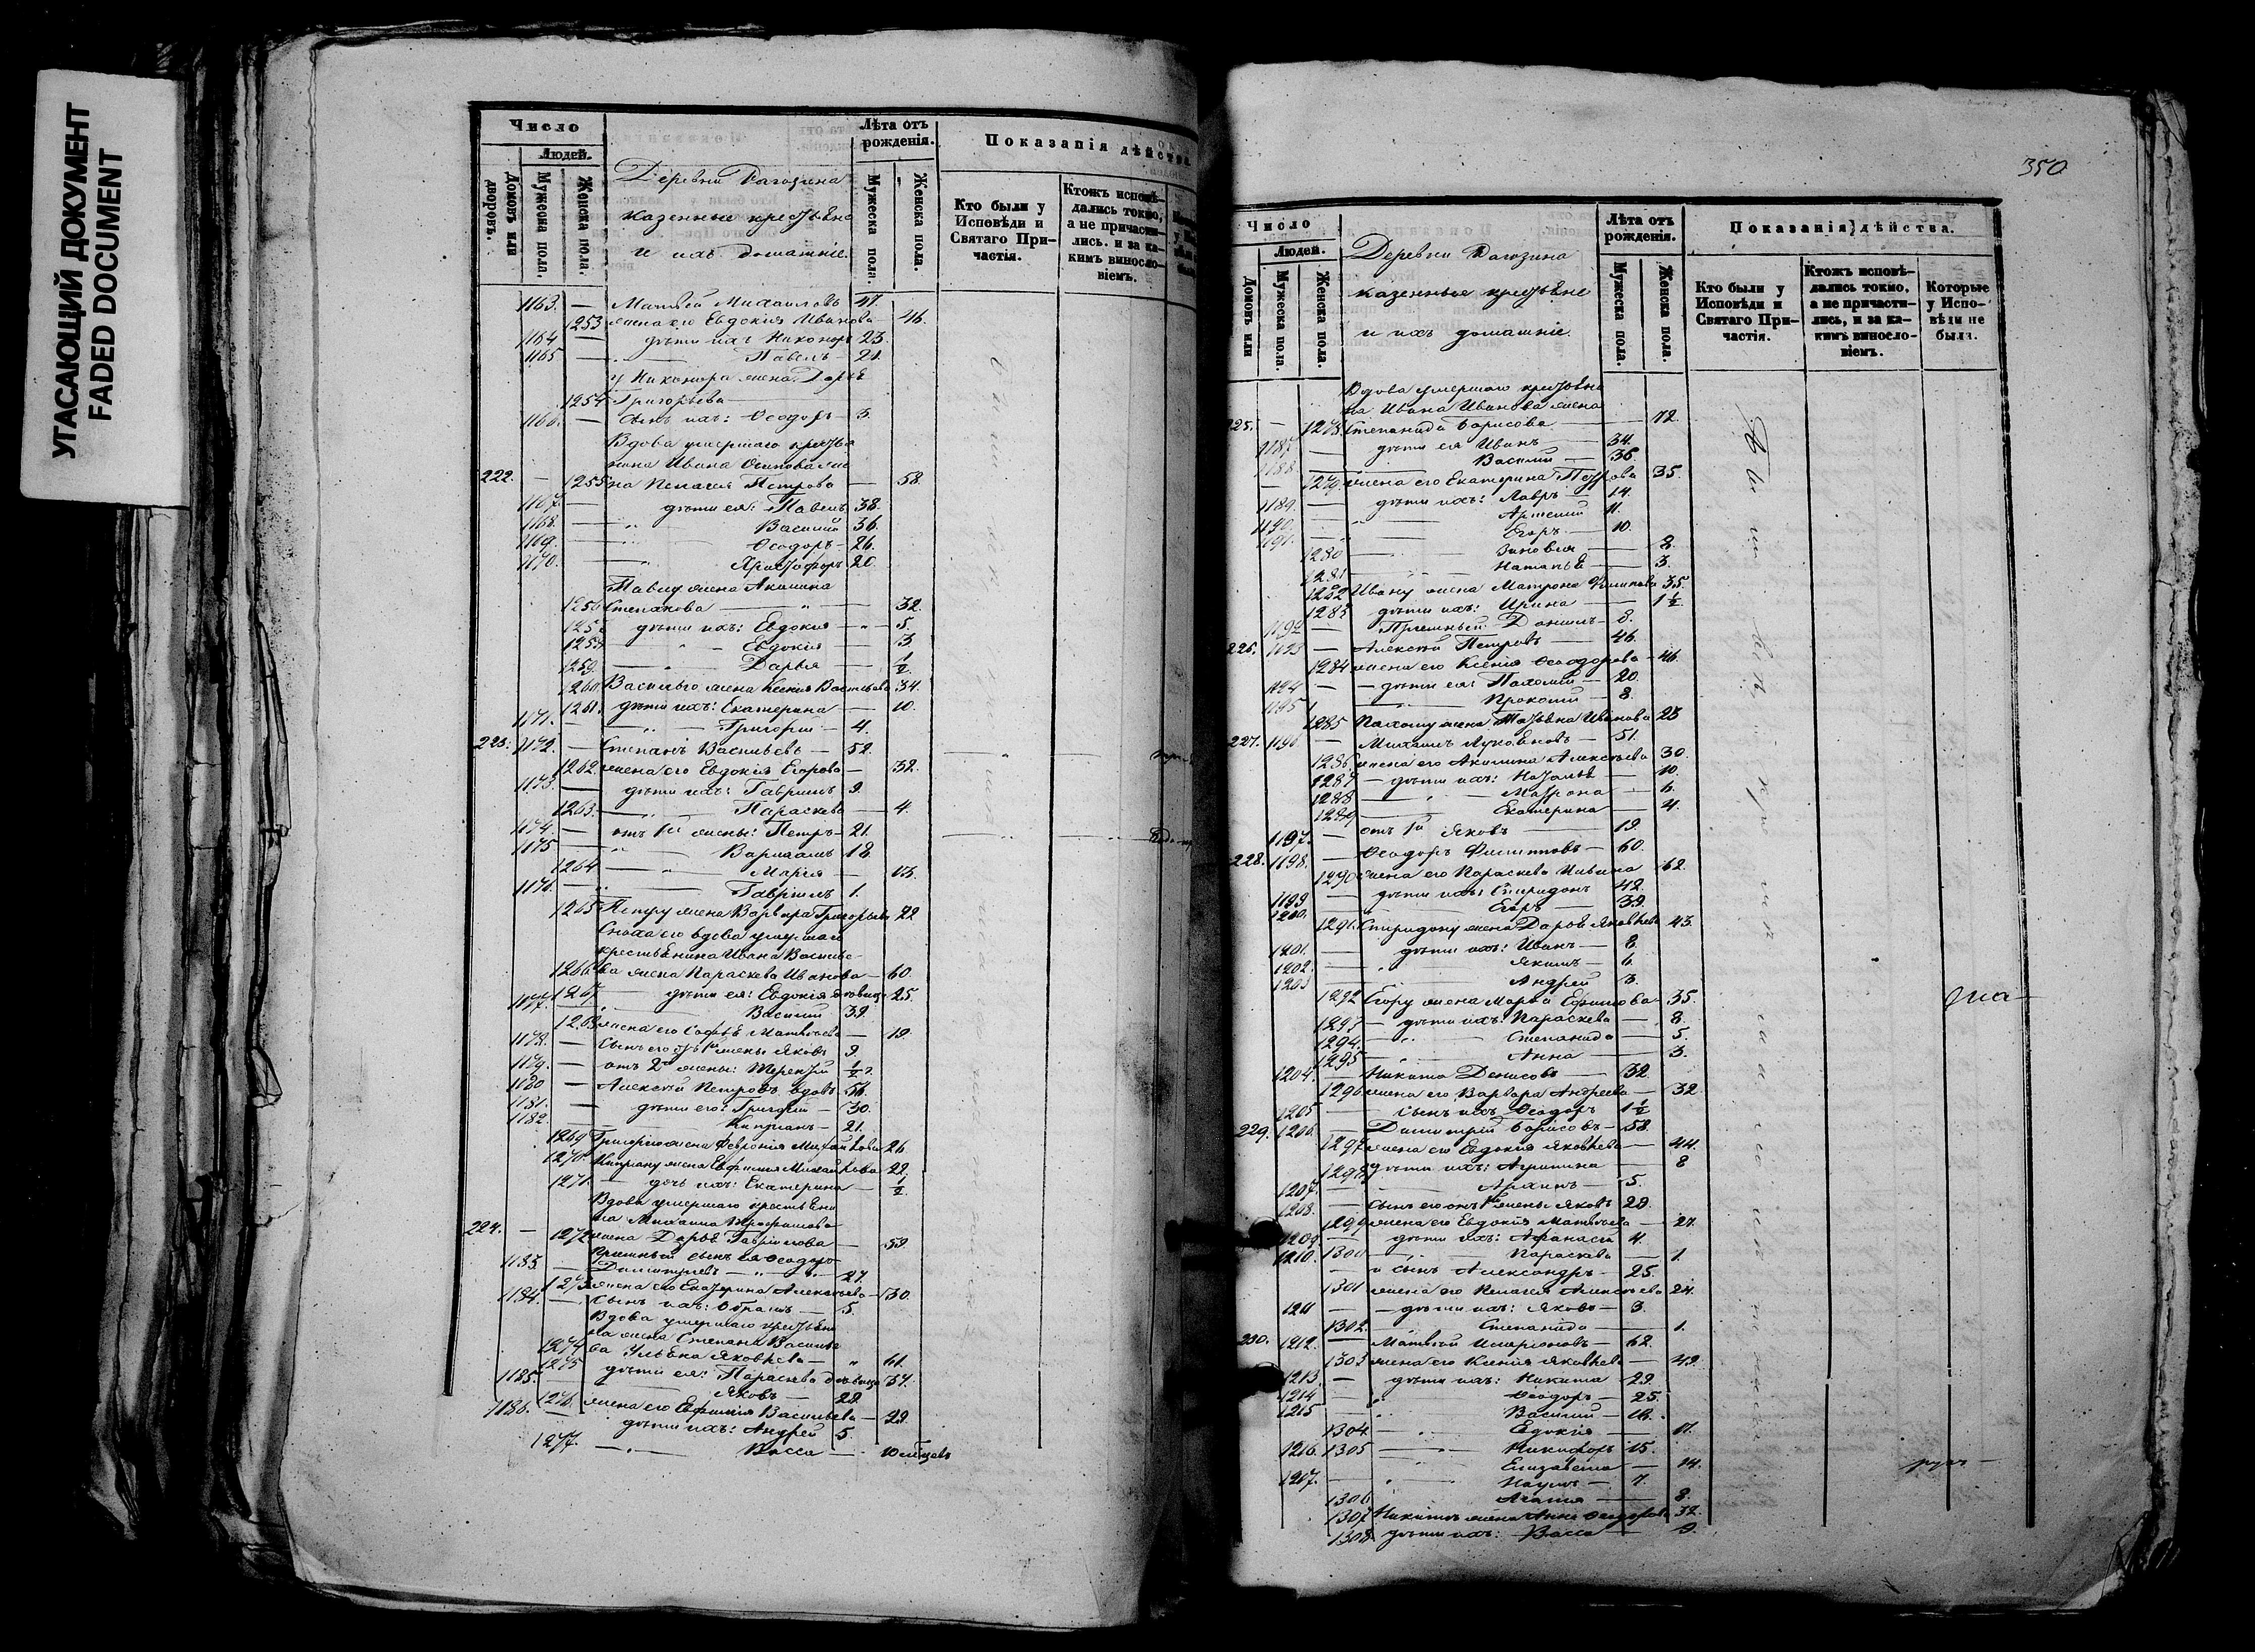 УГАСАЮЩИЙ ДОКУМЕНТ
FADED DOCUMENT
Число
Людей.
Домовъ или дворовъ.
Мужеска пола.
Женска пола.
Деревни Рагозина
казенные крестьяне
и ихъ домашніе.
Лѣта отъ рожденія.
Мужеска пола.
Женска пола.
Показанія дѣйства
Кто были у Исповѣди и Святаго Причастія.
Ктожъ исповѣдались токмо, а не причастились. и за какимъ винословіемъ.
1163. — Матвей Михаиловъ 47.
1253 жена его Евдокия Иванова 46.
1164 — дѣти ихъ Никоноръ 23.
1165 — Павелъ — 21.
у Никонора жена Дарья
1254 Григорьева
1166. — сынъ ихъ: Ѳеодоръ — 3.
Вдова умершаго крестья
нина Ивана Осипова же
222. — 1255 на Пелагея Петрова — 58.
1167. — дѣти ея: Павелъ 38.
1168. — Василий 36.
1169. — Ѳеодоръ — 26.
1170. — Христофоръ 20.
Павлу жена Акилина
1256 Степанова — 32.
1257 дѣти ихъ: Евдокия — 5.
1258 — Евдокія — 3.
1259. — Дарья — ½
1260. Василью жена Ксения Васильева 34.
1261. дѣти ихъ: Екатерина — 10.
1171. — Григорій — 4.
223. 1172. — Степанъ Васильевъ — 52.
1262. жена его Евдокія Егорова — 32.
1173. — дѣти ихъ: Гавриилъ 9.
1263. — Параскева — 4.
1174. — отъ 1й жены: Петръ — 21.
1175 — Варлаамъ 18.
1264 — Марія — 13.
1176. — Гавріилъ 1.
1265 Петру жена Варвара Григорьева 22
Сноха его вдова умершаго
крестьянина Ивана Василье
1266 ва жена Параскева Иванова — 60.
1267 — дѣти ея: Евдокія девица 25.
1177. — Василий 39.
1268 жена его Софья Матвѣева — 19.
1178. — сынъ его отъ 1й жены Яковъ 9.
1179. — отъ 2й жены: Терентій ½
1180 — Алексѣй Петровъ вдовъ 56.
1181. — дѣти его: Григорій — 30.
1182. — Киприанъ — 21.
1269 Григорию жена Феврония Михайлова 26
1270. Киприану жена Евфимия Михайлова 22.
1271. — дочь ихъ: Екатерина — ½
Вдова умершаго крестьяни
на Михаила Трофимова
224. — 1272 жена Дарья Гавриилова — 59.
Приемный сынъ ея Ѳеодоръ
1183. — Димитріевъ — 27.
1273 жена его Екатерина Алексѣева — 30.
1184. — сынъ ихъ: — 5.
Вдова умершаго крестьяни
на жена Степана Василье
1274 ва Ульяна Яковлева — 61.
1275 дѣти ея: Параскева девица 37.
1185. — Яковъ — 28.
1276. жена его Евфимия Васильева — 29.
1186. — дѣти ихъ: Андрей 5.
1277. — Васса — 10 месяцевъ
350
Число
Людей.
Домовъ или
Мужеска пола.
Женска пола.
Деревни Рагозина
казенные крестьяне
и ихъ домашніе.
Лѣта отъ рожденія.
Мужеска пола.
Женска пола.
Показанія дѣйства.
Кто были у Исповѣди и Святаго Причастія.
Ктожъ исповѣдались токмо, а не причастились, и за какимъ винословіемъ.
Которые у Исповѣди не были.
Вдова умершаго крестьяни
на Ивана Иванова жена
225. — 1278. Степанида Борисова — 72.
1187 — дѣти ея Иванъ — 34.
1188. — Василий — 36.
— 1279. жена его Екатерина Петрова 35.
1189. — дѣти ихъ: Лавръ — 14.
1190. — Артемий 11.
1191. — Егоръ — 10.
1280 — Зиновия — 8.
1281 — Наталья — 3.
1282 Ивану жена Матрона Филипова 35.
1283 дѣти ихъ: Ирина — 1½.
1192 — Приемный Даниилъ — 8.
226. 1193 — Алексѣй Петровъ — 46.
1284 жена его Ксения Ѳеодорова — 46.
1194 — дѣти ея: Пахомий — 20.
1195 — Прокопий — 8.
1285 Пахому жена Татьяна Иванова 23
227. 1196 — Михаилъ Лукояновъ — 51.
1286 жена его Акилина Алексѣева 30.
1287 — дѣти ихъ: Наталья — 10.
1288 — Матрона — 6.
1289 — Екатерина — 4.
1197. — отъ 1й Яковъ — 19.
228. 1198. — Ѳеодоръ Филипповъ — 60.
1290 жена его Параскева 62.
1199 — дѣти ихъ: Спиридонъ 42.
1200. — Егоръ — 39.
1291. Спиридону жена Дарья Яковлева 43.
1201. — дѣти ихъ: Иванъ — 8.
1202. — Якимъ — 6.
1203 — Андрей 3.
1292 Егору жена Марья Ефимова — 35.
1293 — дѣти ихъ: Параскева — 8.
1294. — Степанида — 5.
1295 — Анна — 3.
1204. — Никита Денисовъ — 32.
1296 жена его Варвара Андреева — 32.
1205 — сынъ ихъ Ѳеодоръ 1½
229. 1206. — Димитрій Борисовъ — 58.
1297 жена его Евдокия Яковлева — 44.
1298 дѣти ихъ: Агрипина — 8
1207. — Архипъ — 5.
1208. — сынъ его отъ 1й жены Яковъ 28.
1299 жена его Евдокия Матвѣева — 27.
1209 — дѣти ихъ: Афанасій 4.
1300 — Параскева — 1.
1210. — и сынъ Александръ — 25.
1301 жена его Пелагея Алексѣева 24.
1211 — дѣти ихъ: Яковъ — 3.
1302. — Степанида — 1.
230. 1212. — Матвѣй Иларионовъ — 62.
1303 жена его Ксения Яковлева — 49.
1213. — дѣти ихъ: Никита — 29.
1214 — Ѳеодоръ — 25.
1215 — Василий — 18.
1304 — Евдокія — 17.
1216. 1305 — Никифоръ 15.
Елизавета — 14.
1217. — Наумъ — 7.
1306 — Агапия — 8.
1307 Никиты жена Анна Ѳеодорова 32.
1308 дѣти ихъ: Васса — 9.